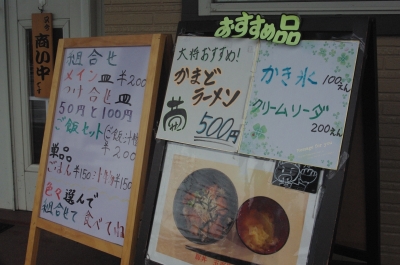 商い中
組合せ
メイン皿 ¥200
組合せ皿
50円と100円
ご飯セット
¥200
単品
¥150
¥150
色々選んで
組合せて食べてね
おすすめ品
大将おすすめ!
かまどラーメン
500円
かき氷
100えん
クリームソーダ
200えん